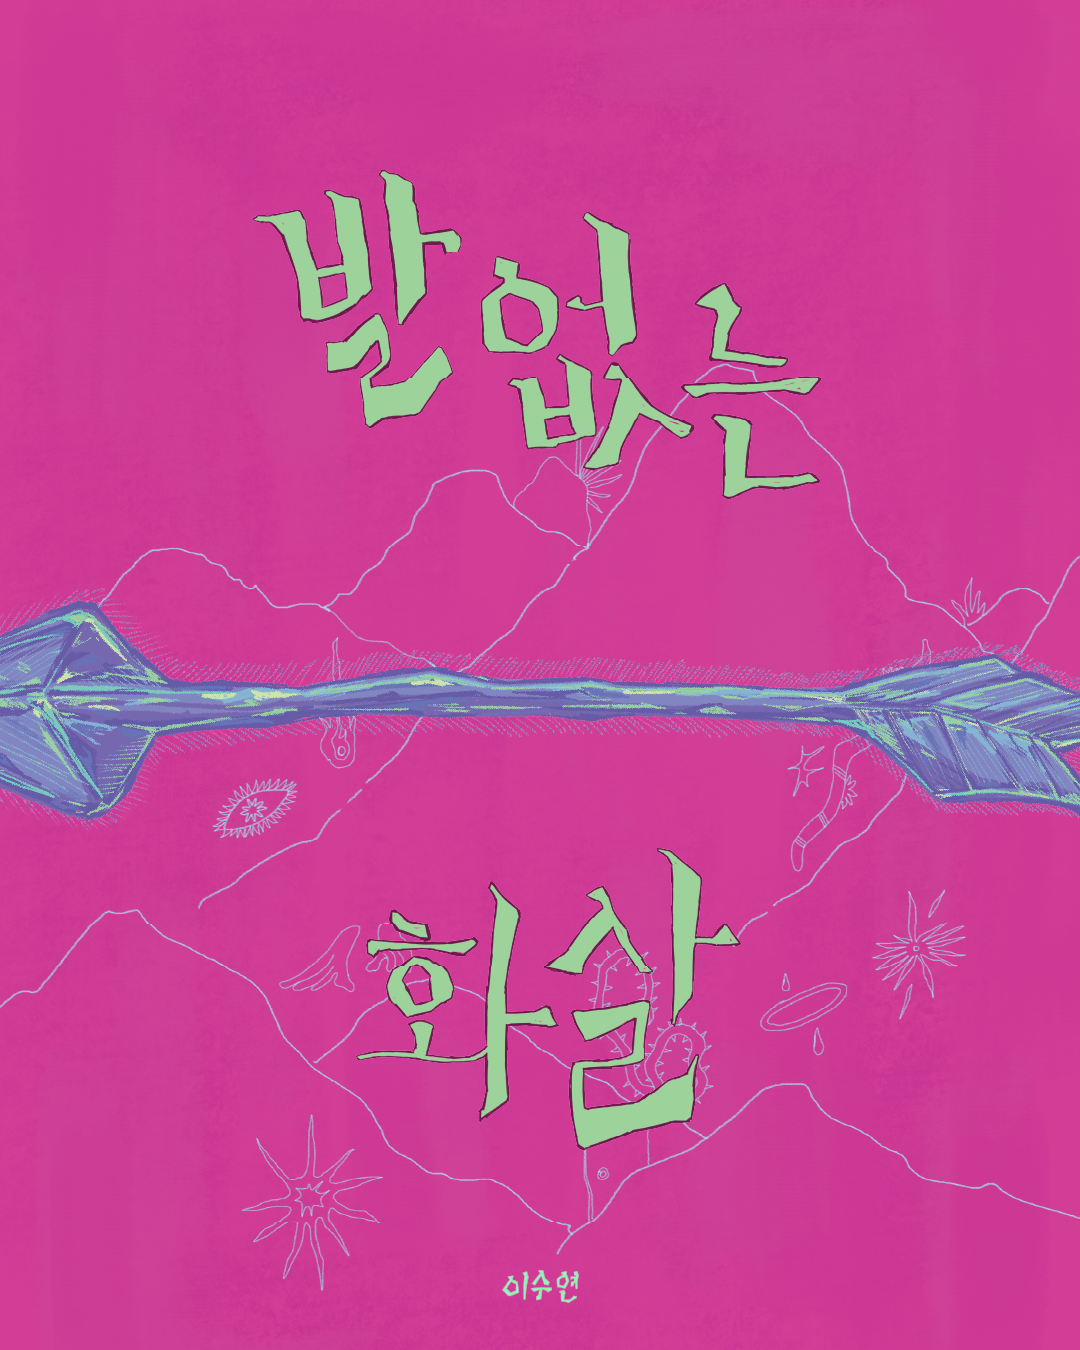 발 없는
화살
이수연